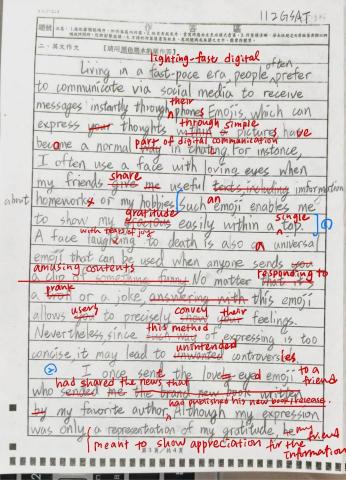 112GSAT
二、英文作文
lighting-fast digital
often
Living in a fast-pace era, people prefer
to communicate via social media to receive
their
messages instantly through phones. Emojis, which can
through simple
express your thoughts within a picture, have
part of digital communication
become a normal way in chating. For instance,
I often use a face with loving eyes when
share
my friends give me useful texts including information
about homeworks or my hobbies. Such an emoji enables me
gratitude
single
to show my gracious easily within a top.
with tears of joy
A face laughing to death is also a universal
emoji that can be used when anyone sends you
amusing contents
responding to
a clip of something funny. No matter that it's
prank
a or a joke, answering with this emoji
users
convey their
allows you to precisely show your feelings.
this method
Nevertheless, since such way of expressing is too
unintended
concise, it may lead to unwanted controversies.
I once sent the loved eyed emoji to a friend
had shared the news that
who sended me the brand new book written
had published his new book release.
by my favorite author. Although my expression
was only a representation of my gratitude, he my friend
meant to show appreciation for the information
第3頁/共4頁